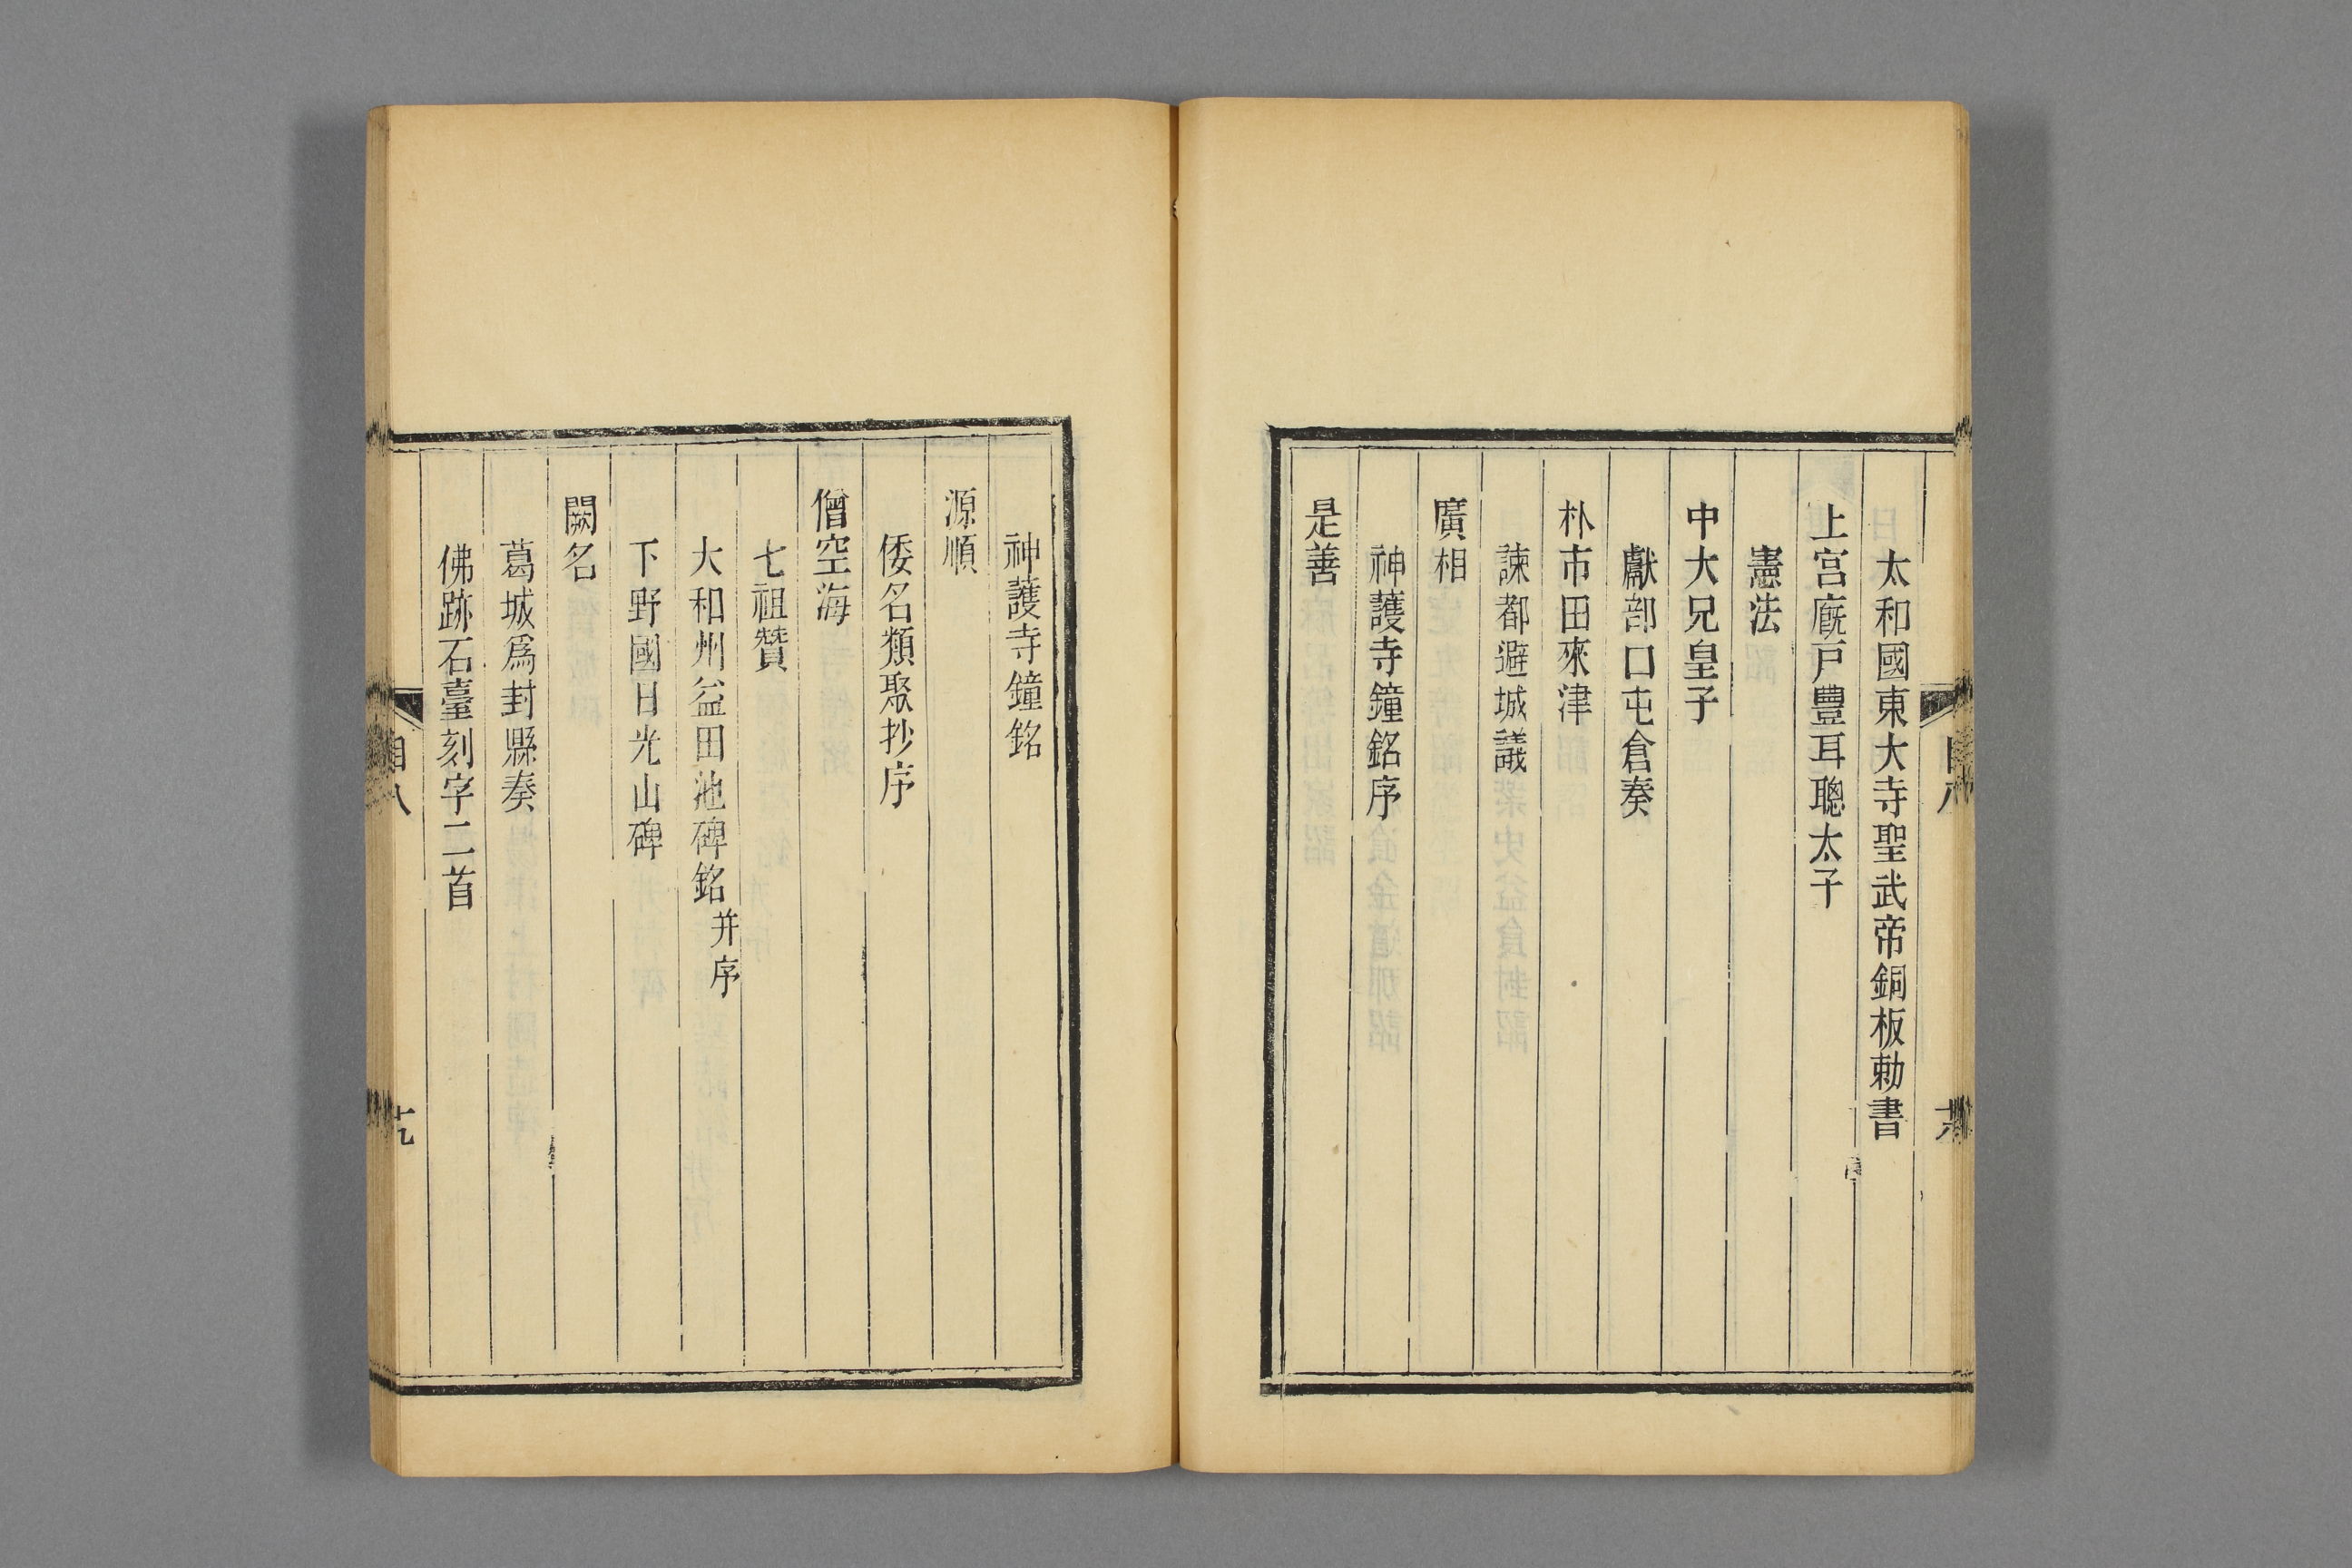 太和國東大寺聖武帝銅板勅書
上宮廐戸豊耳聰太子
憲法
中大兄皇子
獻部口屯倉奏
朴市田來津
諫都避城議
廣相
神護寺鐘銘序
是善
神護寺鐘銘
源順
倭名類聚抄序
僧空海
七祖贊
大和州益田池碑銘并序
下野國日光山碑
闕名
葛城爲封縣奏
佛跡石臺刻字二首
目八